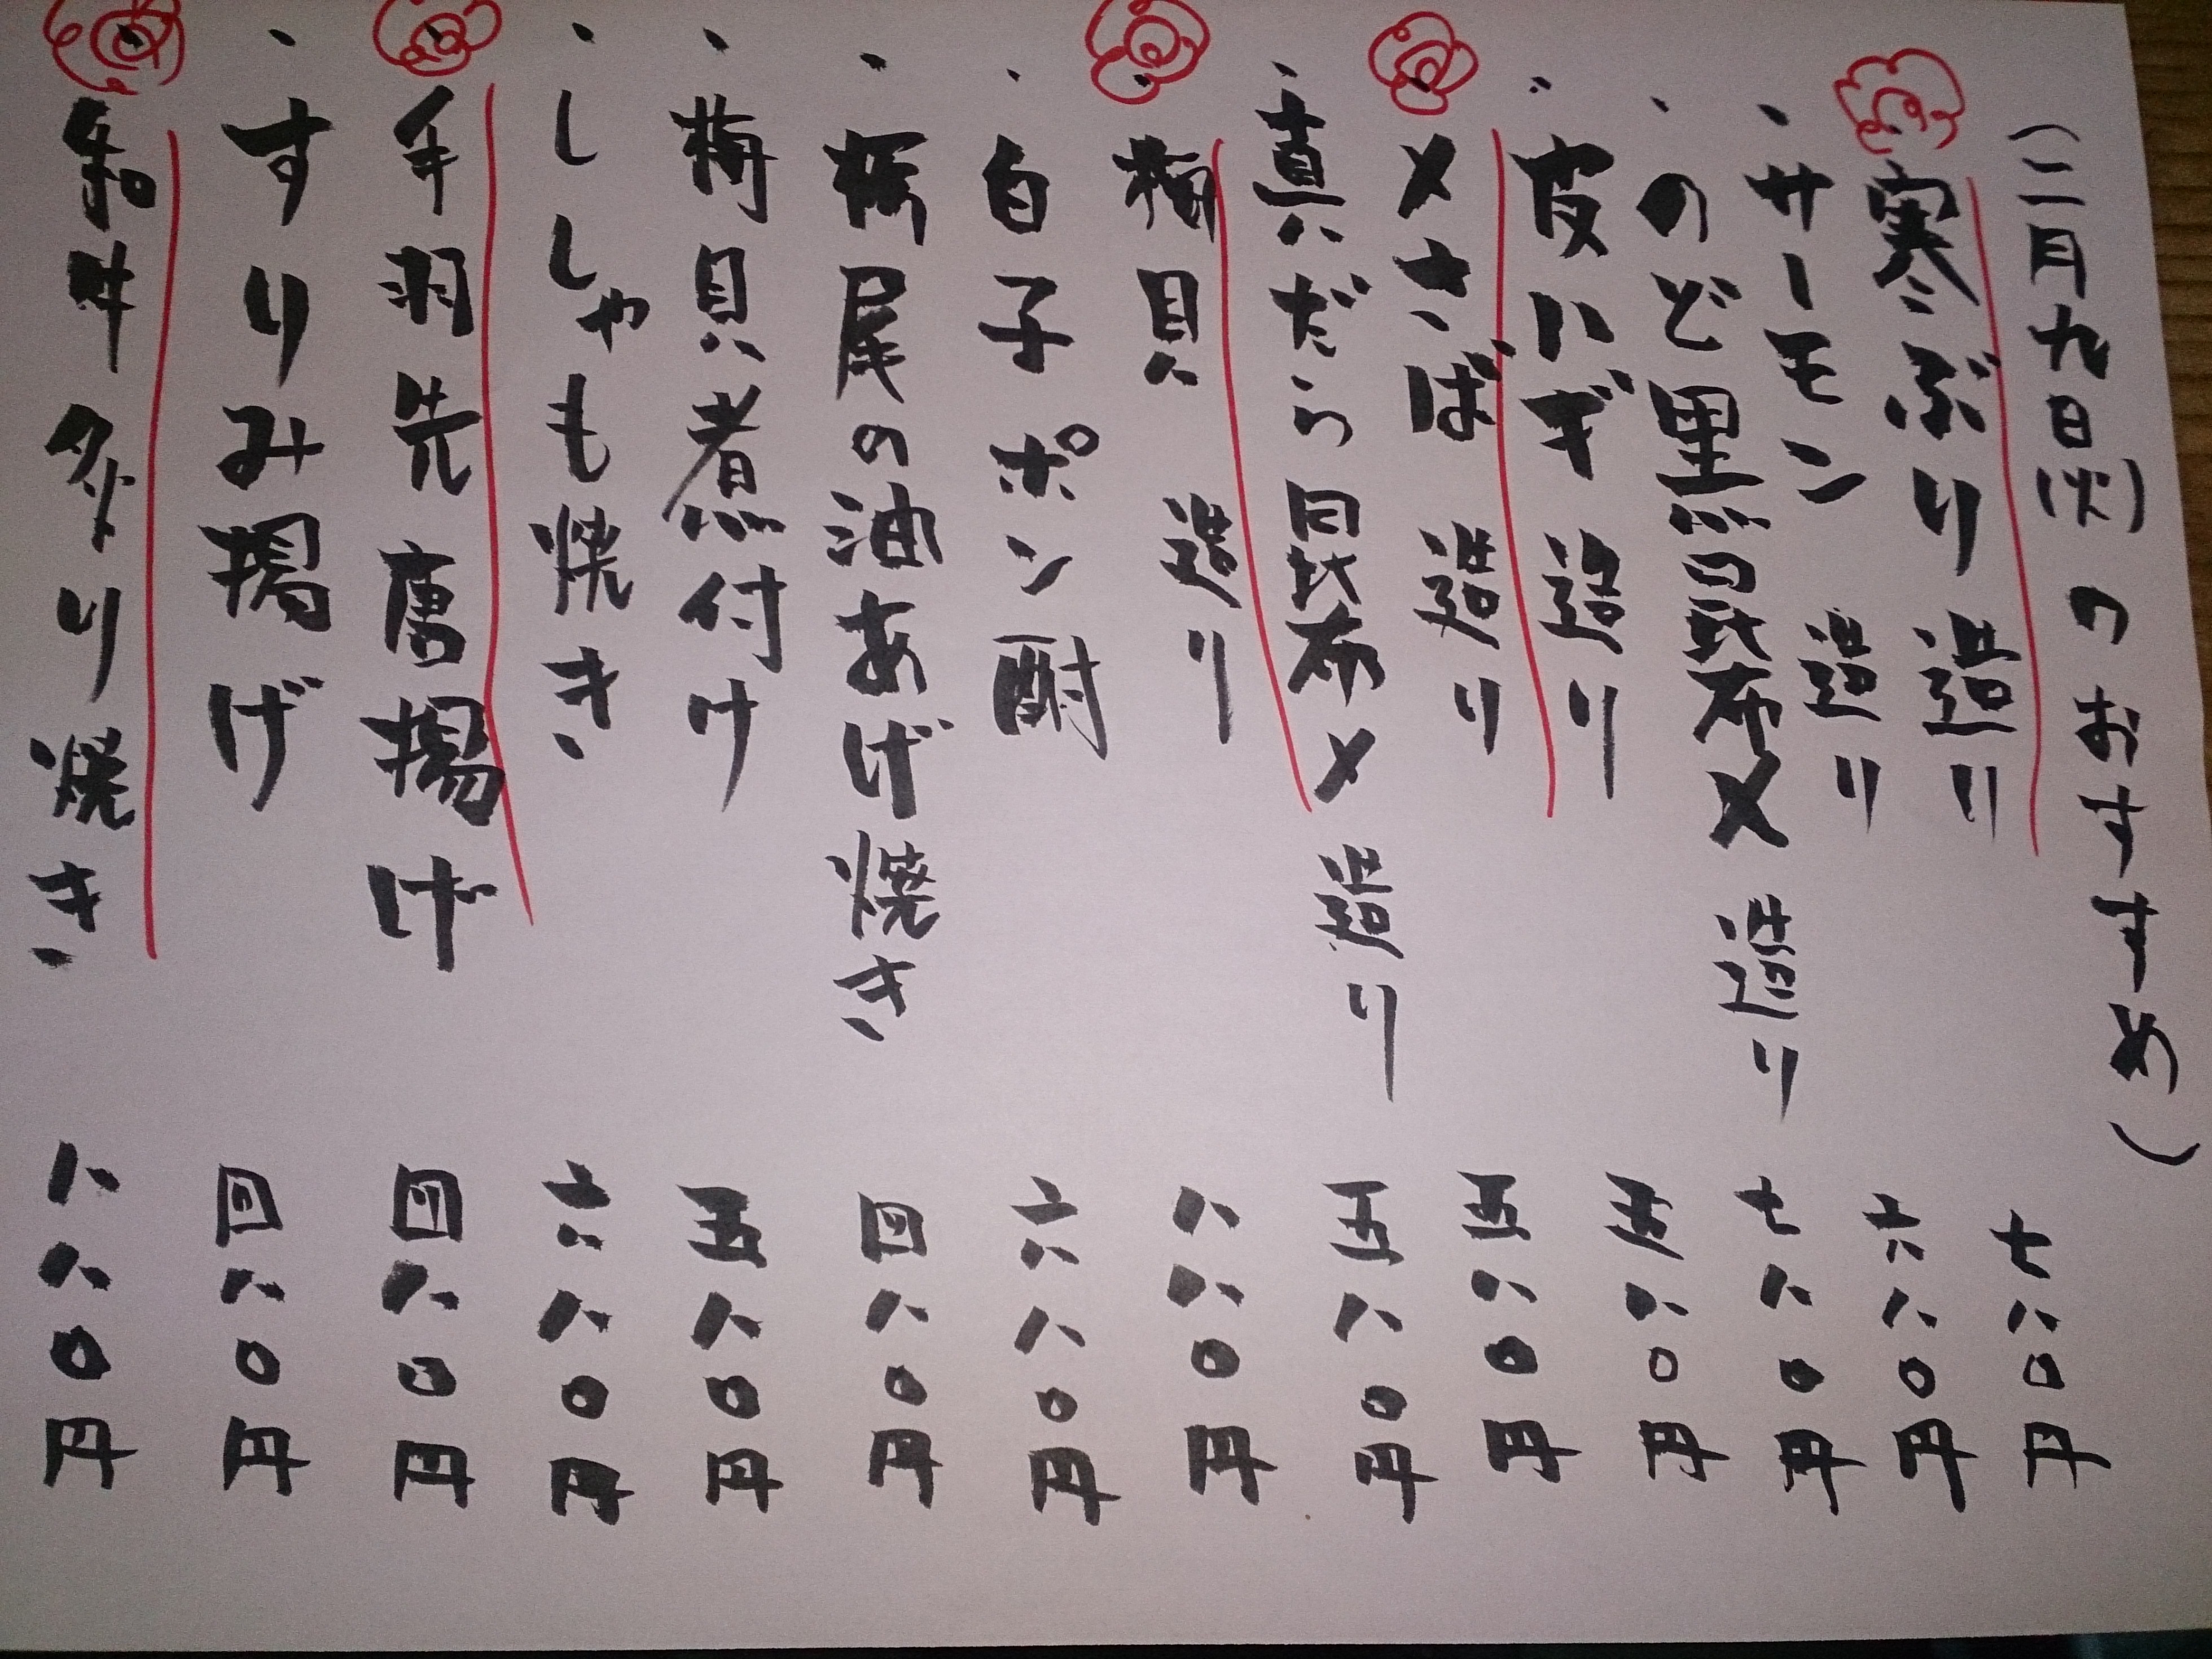 (二月九日(火)のおすすめ)
寒ぶり 造り 七八〇円
・サーモン 造り 六八〇円
・のど黒昆布〆 造り 七八〇円
・皮ハギ 造り 五八〇円
〆さば 造り 五八〇円
・真だら昆布〆 造り 五八〇円
梅貝 造り 八八〇円
・白子ポン酎 六八〇円
・栃尾の油あげ焼き 四八〇円
・梅貝煮付け 五八〇円
・ししゃも焼き 六八〇円
手羽先唐揚げ 四八〇円
・すりみ揚げ 四八〇円
和牛 焼き 八八〇円